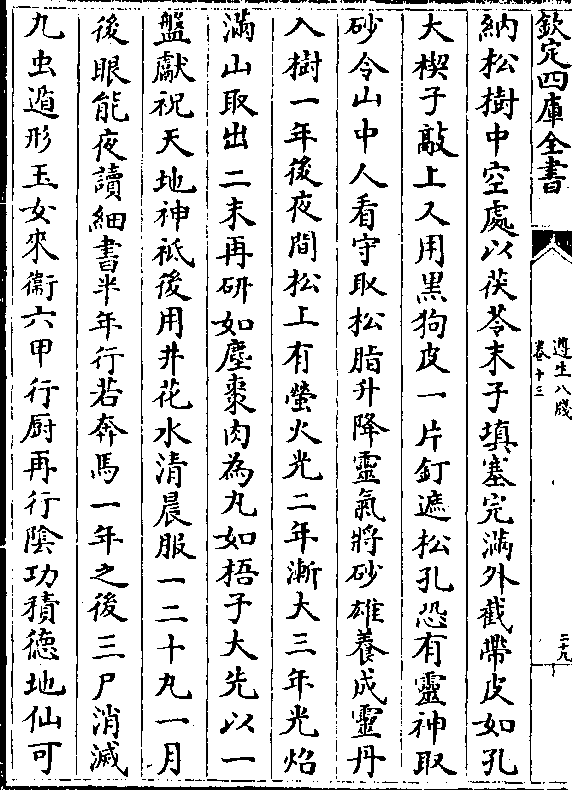 欽定四庫全書
遵生八牋
卷十三
二十九
納松樹中空處以茯苓末子填塞完滿外截帶皮如孔
大楔子敲上又用黑狗皮一片釘遮松孔恐有靈神取
砂令山中人看守取松脂升降靈氣將砂雄養成靈丹
入樹一年後夜間松上有螢火光二年漸大三年光焰
滿山取出二末再研如塵棗肉為丸如梧子大先以一
盤獻祝天地神祇後用井花水清晨服一二十丸一月
後眼能夜讀細書半年行若奔馬一年之後三尸消滅
九虫遁形玉女來衞六甲行厨再行陰功積德地仙可